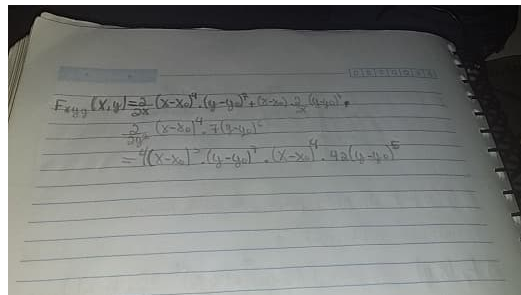 Fxyy (x,y) = ∂/∂x (x-x₀)⁴ . (y-y₀)⁷ + (x-x₀) . ∂/∂x (y-y₀)⁷ .
∂/∂y² (x-x₀)⁴ . 7(y-y₀)
= 4(x-x₀)³ . (y-y₀)⁷ . (x-x₀)⁴ . 42(y-y₀)⁵